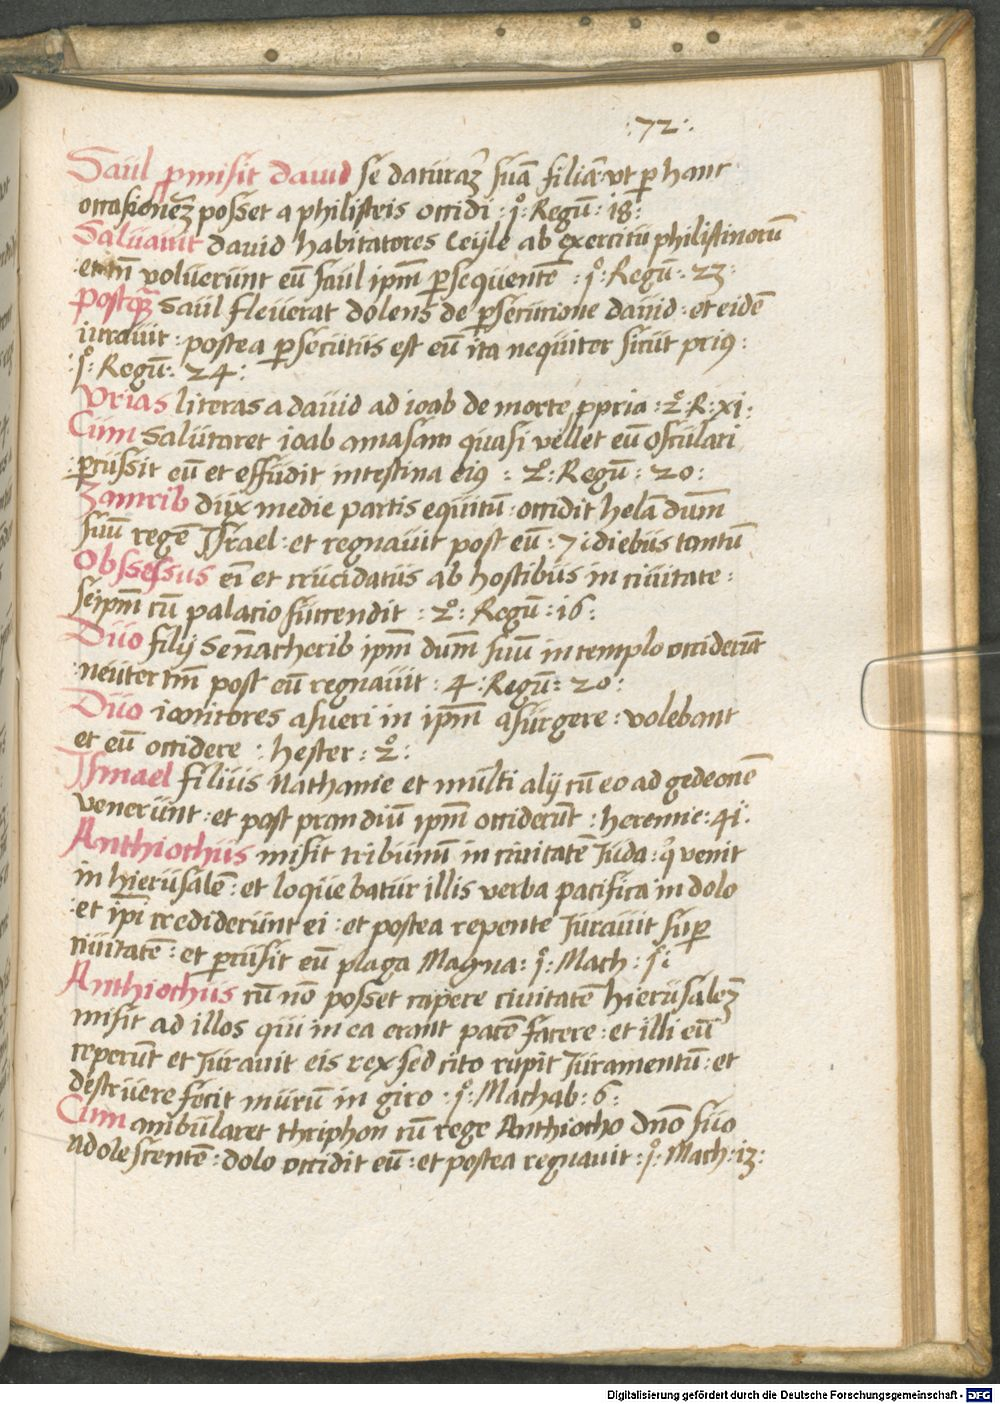 :72:
Saul ꝓmisit dauid se daturaʒ suā filiā ut ꝑ hanc
occasioneʒ posset a philisteis occidi : jº: Regū: 18:
Saluauit dauid habitatores Ceyle ab exercitu philistinorū
et tn̄ voluerunt eū saul ipm̄ ꝑsequentē : jº: Regū: 23:
Postqʒ Saul fleuerat dolens de ꝑsecucione dauid : et eidē
iurauit : postea ꝑsecutus est eū ita nequiter sicut priꝰ :
:jº: Regū: 24:
Vrias literas a dauid ad ioab de morte ꝓpria : 2º: R: xj:
Cum salutaret ioab amasam quasi vellet eū osculari
ꝑcussit eū et effudit intestina eiꝰ : 2º: Regū: 20:
Zamrib dux medie partis equitū : occidit hela dūm
suū regē Jsrael : et regnauit post eū : 7 : diebus tantū
Obssessus eī et crucidatus ab hostibus in ciuitate :
seipm̄ cū palacio succendit : 2º: Regū: 16:
Duo filij Sennacherib ipm̄ dūm suū in templo occiderūt
neuter tn̄ post eū regnauit : 4: Regū: 20:
Duo ianitores asueri in ipm̄ asurgere : volebant
et eū occidere : hester : 2º:
Jsmael filius Nathanie et multi alij cū eo ad gedeonē
venerunt : et post prandiū ipm̄ occiderūt : heremie: 41:
Anthiochus misit tribunū in ciuitatē Juda : qͥ venit
in hierusalē : et loquebatur illis verba pacifica in dolo
et ip̄i crediderunt ei : et postea repente Jurauit suꝑ
ciuitatē : et ꝑcusit eū plaga Magna: jº: Mach: jº:
Anthiochus cū nō posset capere ciuitatē hierusaleʒ
misit ad illos qui in ea erant pacē facere : et illi eū
ceperūt et Jurauit eis rex sed cito rupit Juramentū : et
destruere fecit murū in giro : jº: Machab: 6:
Cum ambularet thriphon cū rege Anthiocho dn̄o suo
adolescentē : dolo occidit eū : et postea regnauit : jº: Mach: 13:
Digitalisierung gefördert durch die Deutsche Forschungsgemeinschaft - DFG